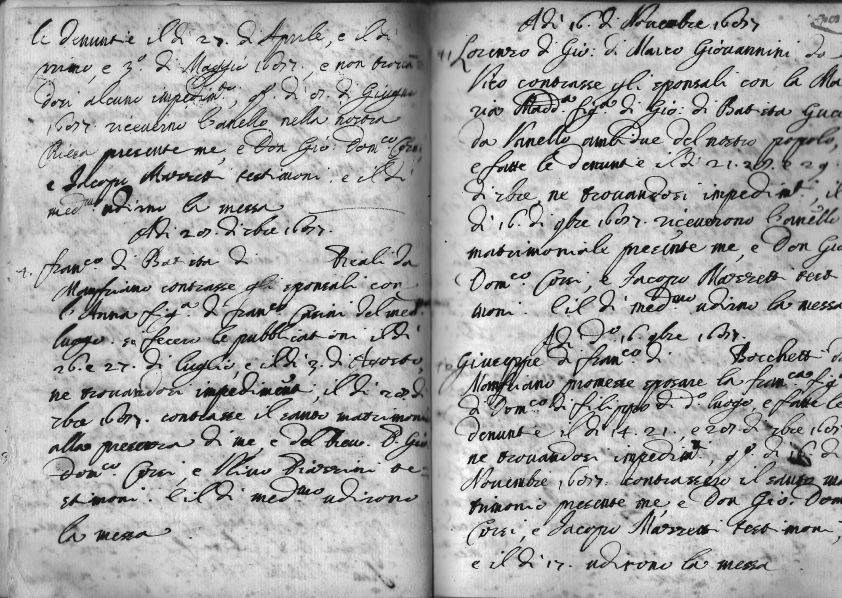 le denuntie il dì 27. di Aprile, e il dì
primo, e 3º. di Maggio 1687, e non trovan
dosi alcuno impedimto, qto dì 8. di Giugno
1687. riceverno l'anello nella nostra
Chiesa presente me, e Don Gio: Domco Corsi
e Jacopo Mazzetti testimoni. e il dì
medmo udirno la messa
Adì 28. di 7bre 1687.
Franco di Batista di Breali da
Monfliano contrasse gli sponsali con
l'Anna figa di Franco Casini del med.
luogo. si fecero le pubblicationi il dì
26. e 27. di luglio, e il dì 3. di Agosto,
ne trovandosi impedimento, il dì 28. di
7bre 1687. contrasse il santo matrimonio
alla presenza di me, e del Reu. P. Gio
Domco Corsi, e Ulivo Piazzini te-
stimoni. e il dì medmo udirono
la messa
Adì 16. di Novembre 1687
Lorenzo di Gio: di Marco Giovannini da
Vito contrasse gli sponsali con la Ma
ria Madda figa di Gio: di Batista
da Vanello ambidue del nostro popolo,
e fatte le denuntie il dì 21. 28. e 29.
di 7bre, ne trovandosi impedimto, il
dì 16. di 9bre 1687. riceverono l'anello
matrimoniale presente me, e Don Gio
Domco Corsi, e Jacopo Mazzetti testi
moni. e il dì medmo udirno la messa
Adì do 16. 9bre 1687.
Giuseppe di Franco di Bocchetti da
Monfliano promesse sposare la Franca figa
di Domco di Filippo di do luogo, e fatte le
denuntie il dì 14. 21., e 28. di 7bre 1687
ne trovandosi impedimto, qto dì 16. di
Novembre 1687. contrassero il santo ma
trimonio presente me, e Don Gio: Dom
Corsi, e Jacopo Mazzetti testimoni,
e il dì 17. udirono la messa